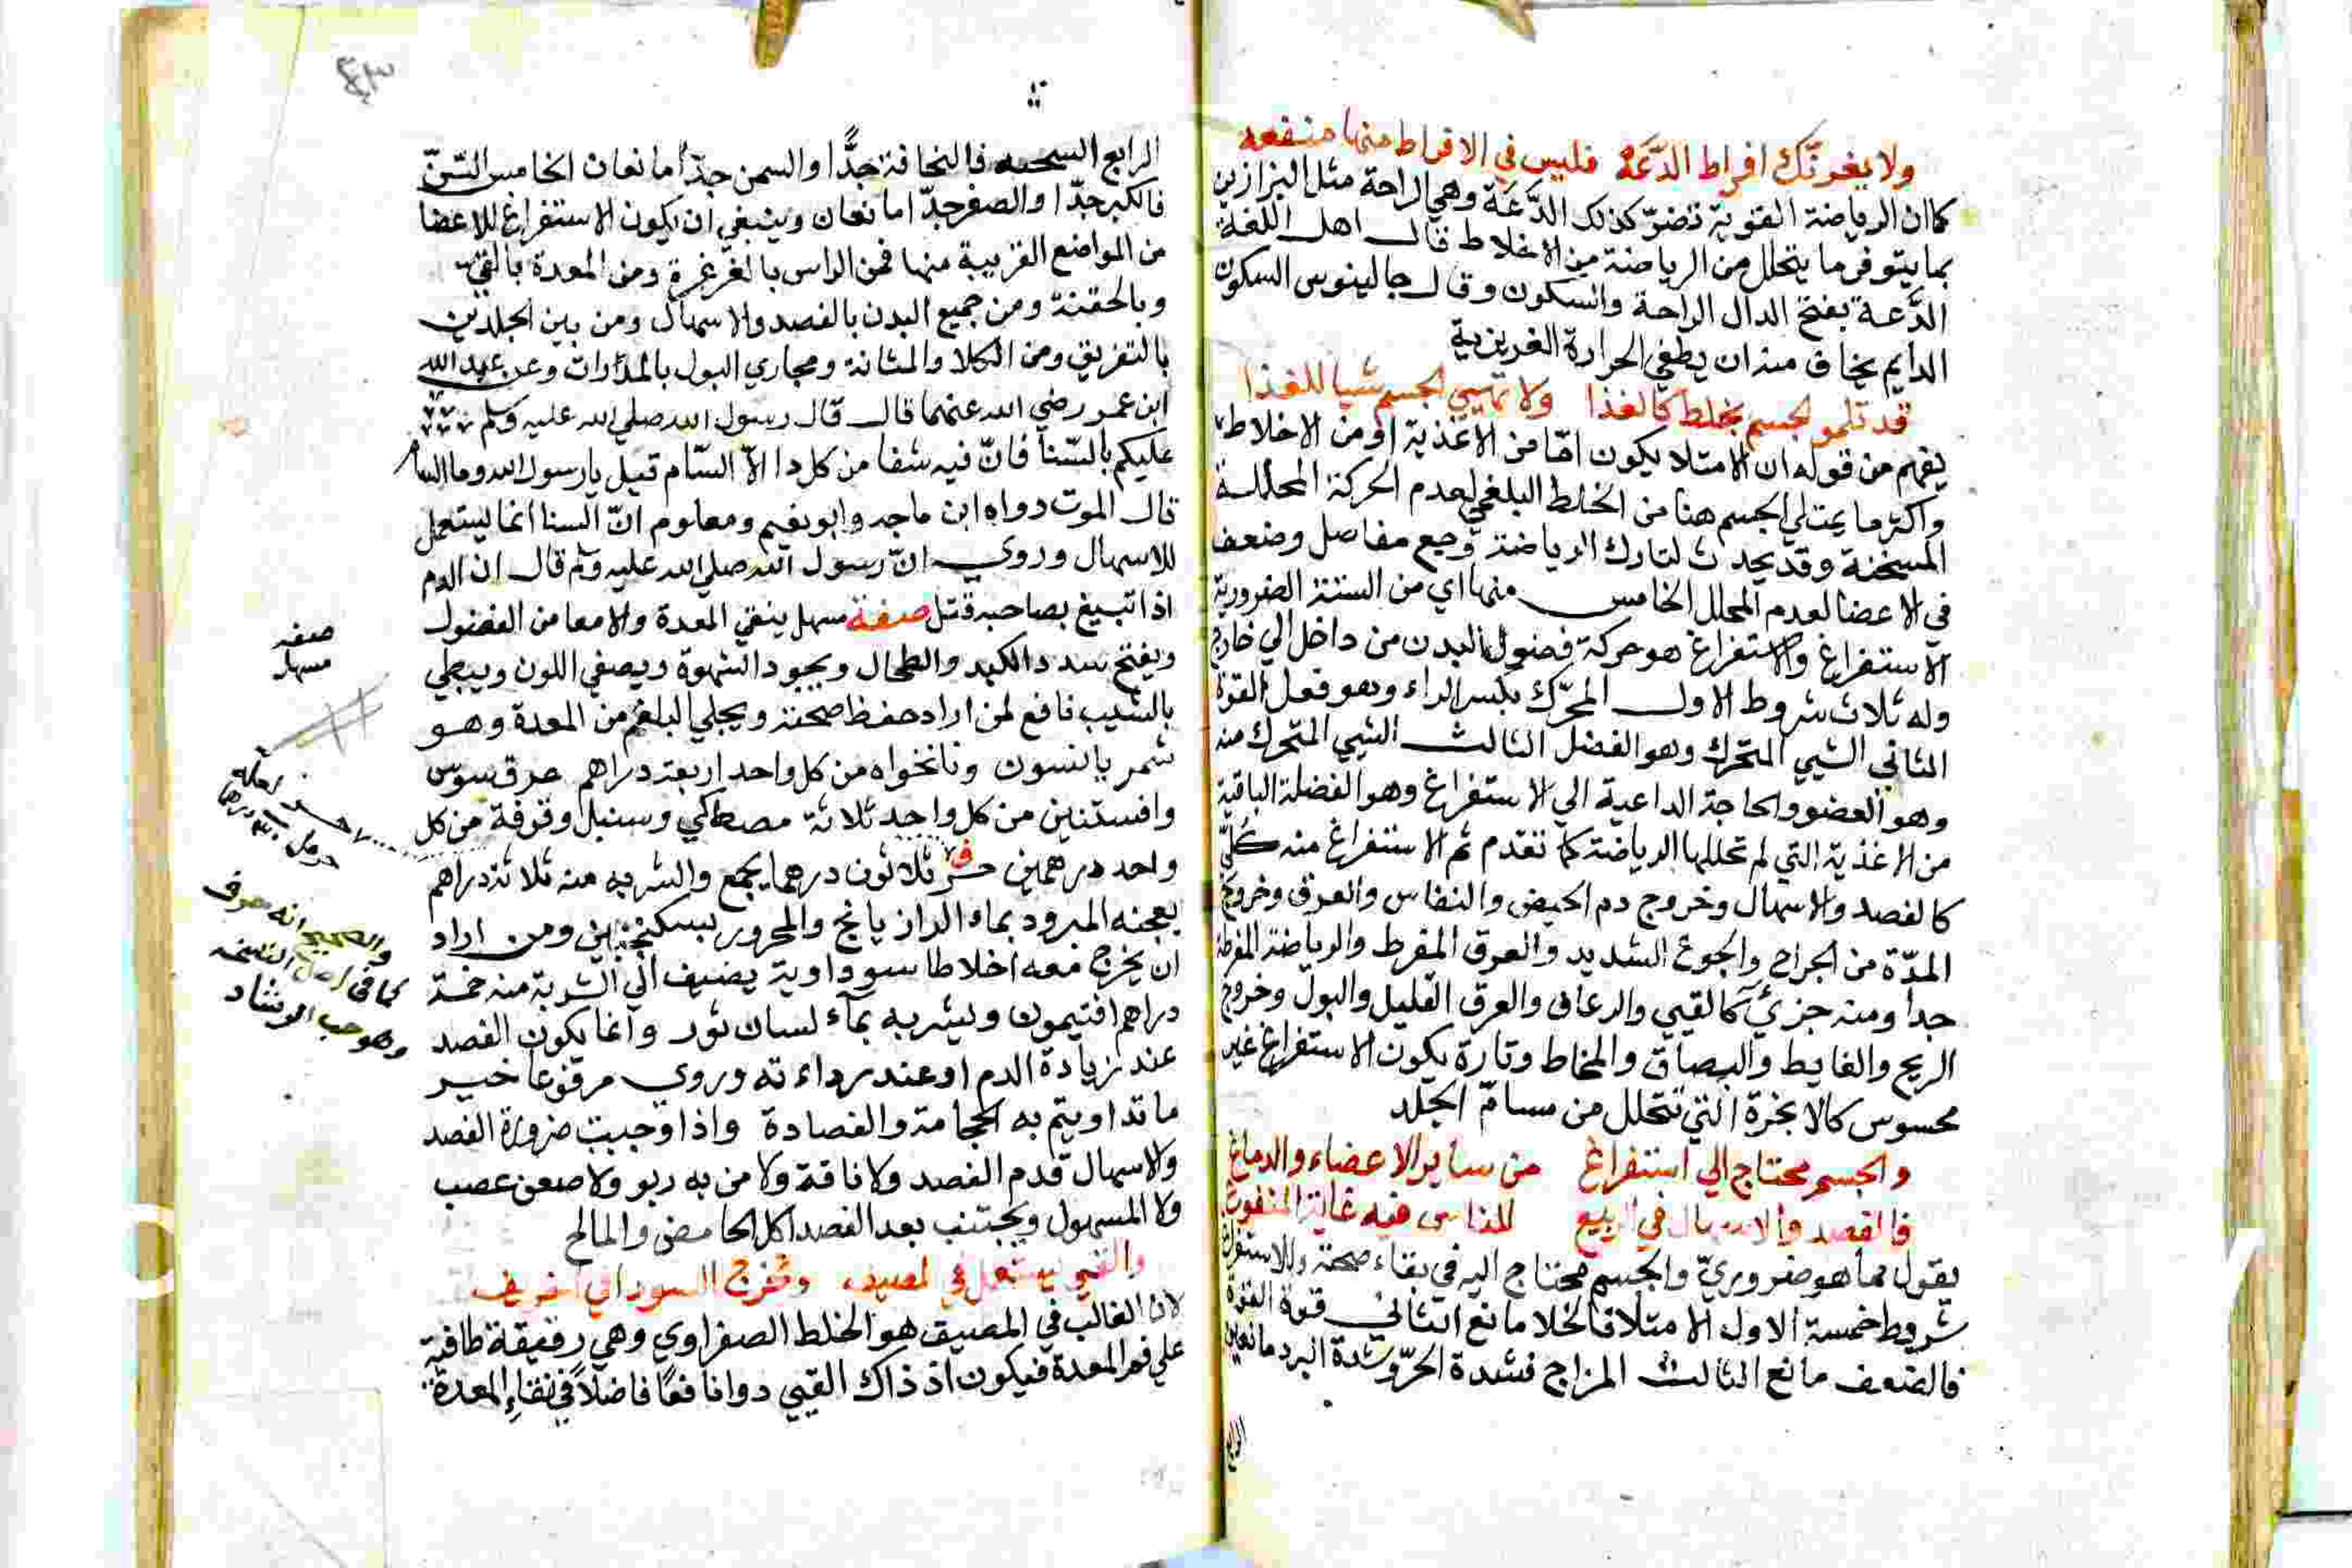 ولا يغرنّك افراط الدَّعَة فليس في الافراط منها منفعه
كما ان الرياضة القوية تضرّ كذلك الدَّعَة وهي الراحة مثل البزازين
بما يتوفر ما يتحلل من الرياضة من الاخلاط قال اهل اللغة
الدَّعة بفتح الدال الراحة والسكون وقال جالينوس السكون
الدايم يخاف منه ان يطفي الحرارة الغريزية
قد تملو لجسم بخلط كالغذا ولا تهيي لجسم شيا للغذا
يفهم من قوله ان الامتلا يكون امّا من الاغذية او من الاخلاط
واكثر ما يمتلي الجسم هنا من الخلط البلغمي لعدم الحركة المحللة
المسخنة وقد يحدث لتارك الرياضة وجع مفاصل وضعف
في الاعضا لعدم المحلل الخامس منها اي من الستة الضرورية
الاستفراغ والاستفراغ هو حركة فضول البدن من داخل الي خارج
وله ثلاث شروط الاول المحرّك بكسر الراء وهو فعل القوة
الثاني الشيي المتحرك وهو الفضل الثالث الشيي المتحرك منه
وهو العضو والحاجة الداعية الي الاستفراغ وهو الفضلة الباقية
من الاغذية التي لم تحللها الرياضة كما تقدم ثم الاستفراغ منه كلّي
كالفصد والاسهال وخروج دم الحيض والنفاس والعرق وخروج
المدّة من الجراح والجوع الشديد والعرق المفرط والرياضة المفرطة
جدا ومنه جزئي كالقيي والرعاف والعرق القليل والبول وخروج
الريح والغايط والبصاق والمخاط وتارة يكون الاستفراغ غير
محسوس كالابخرة التي تتحلل من مسامّ الجلد
والجسم محتاج الي استفراغ من ساير الاعضاء والدماغ
فالفصد والاسهال في الربيع للناس فيه غاية المنفوع
يقول مما هو ضروريّ والجسم محتاج اليه في بقاء صحته وللاستفراغ
شروط خمسة الاول الامتلا فالخلا مانع الثاني قوة القوة
فالضعف مانع الثالث المزاج فشدة الحرّ وشدة البرد مانعان
الرابع
الرابع السحنه فالنحافة جدًّا والسمن جدّا مانعان الخامس السّنّ
فالكبر جدّا والصغر جدّا مانعان وينبغي ان يكون الاستفراغ للاعضا
من المواضع القريبة منها فمن الراس بالغرغرة ومن المعدة بالقيّ
وبالحقنة ومن جميع البدن بالفصد والاسهال ومن بين الجلدين
بالتعريق ومن الكلا والمثانة ومجاري البول بالمدرّات وعن عبد الله
ابن عمر رضي الله عنهما قال قال رسول الله صلي الله عليه وسلم
عليكم بالسّنا فانّ فيه شفا من كل دا الاّ السّام قيل يا رسول الله وما السام
قال الموت رواه ابن ماجه وابو نعيم ومعلوم انّ السنا انما يستعمل
للاسهال وروي انّ رسول الله صلي الله عليه وسلم قال ان الدم
اذا تبيغ بصاحبه قتل صفة مسهل ينقي المعدة والامعا من الفضول
ويفتح سدد الكبد والطحال ويجود الشهوة ويصفي اللون ويبطي
بالشيب نافع لمن اراد حفظ صحته ويجلي البلغم من المعدة وهو
شمر يانسون ونانخواه من كل واحد اربعة دراهم عرق سوس
وافسنتين من كل واحد ثلاثة مصطكي وسنبل وقرفة من كل
واحد درهمين حرف ثلاثون درهما يجمع والشربه منه ثلاثة دراهم
يعجنه المبرود بماء الرازيانج والمحرور بسكنجبين ومن اراد
ان يخرج معه اخلاطا سوداوية يضيف الي الشربة منه خمسة
دراهم افتيمون ويشربه بماء لسان ثور وانما يكون الفصد
عند زيادة الدم او عند رداءته وروي مرفوعا خير
ما تداويتم به الحجامة والفصادة واذا وجبت ضرورة الفصد
والاسهال قدم الفصد ولا ناقة ولا من به ربو ولا ضعف عصب
ولا المسهول ويجتنب بعد الفصد اكل الحامض والمالح
والقيي يستعمل في لمصيف وتخرج السودا في الخريف
لان الغالب في المصيف هو الخلط الصفراوي وهي رقيقة طافية
علي فم المعدة فيكون اذ ذاك القيي دوا نافعًا فاضلاً في نقاء المعدة
صفه
مسهل
لعله
حرمل ٣٠ درهما
والصحيح انه حرف
كما في اصل النسخه
وهو حب الرشاد